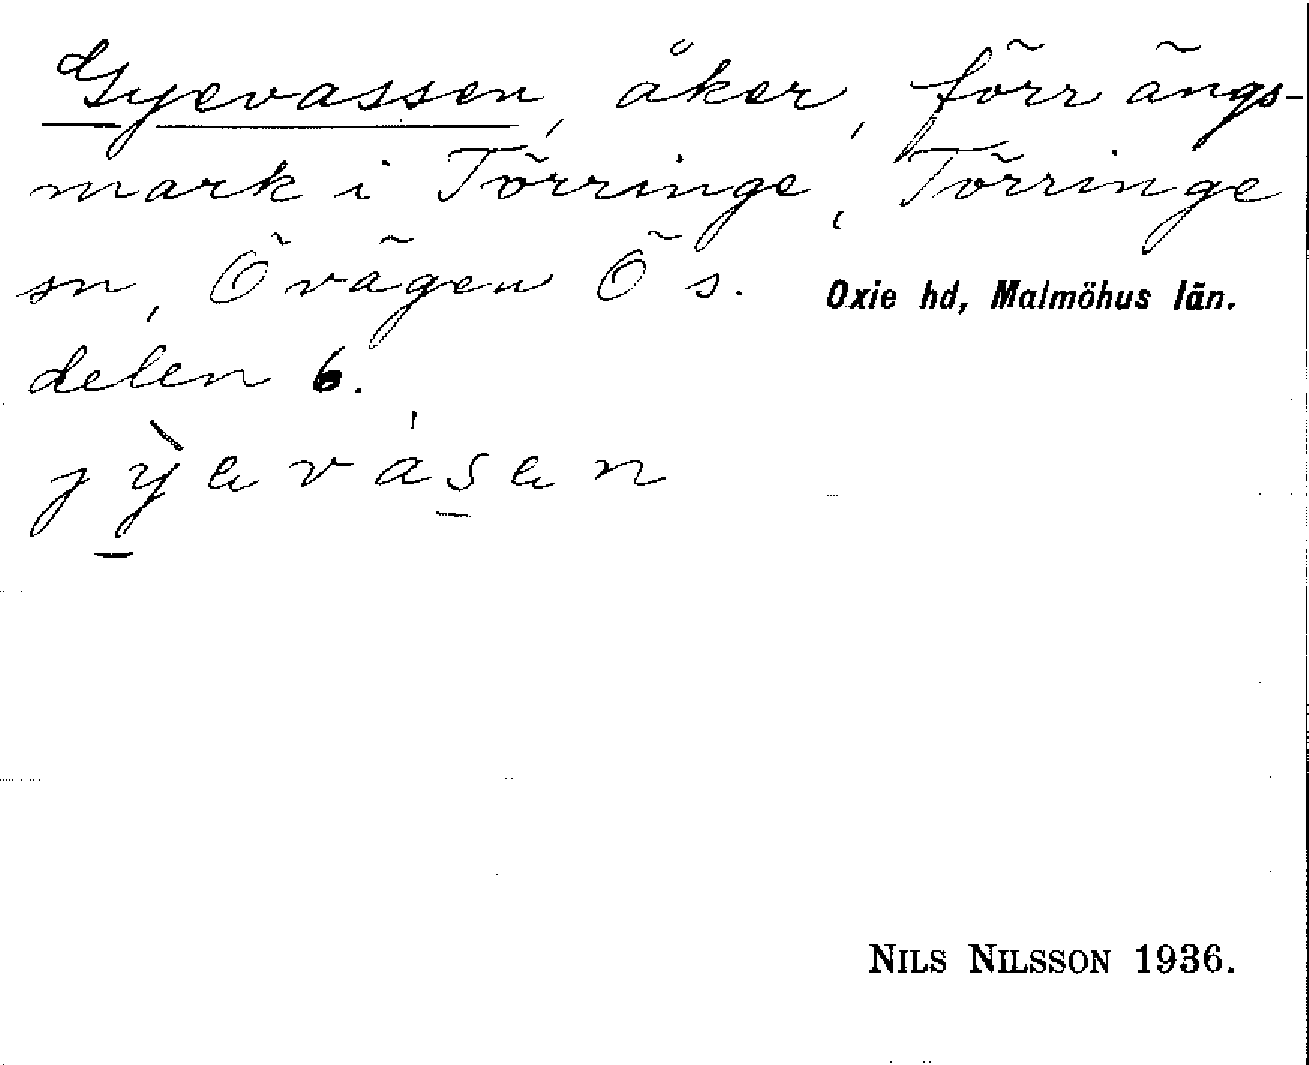 Gyevassen, åker, förr ängs-
mark i Törringe, Törringe
sn, Övägen Ö s. Oxie hd, Malmöhus län.
delen 6.
jỳevásen
NILS NILSSON 1936.